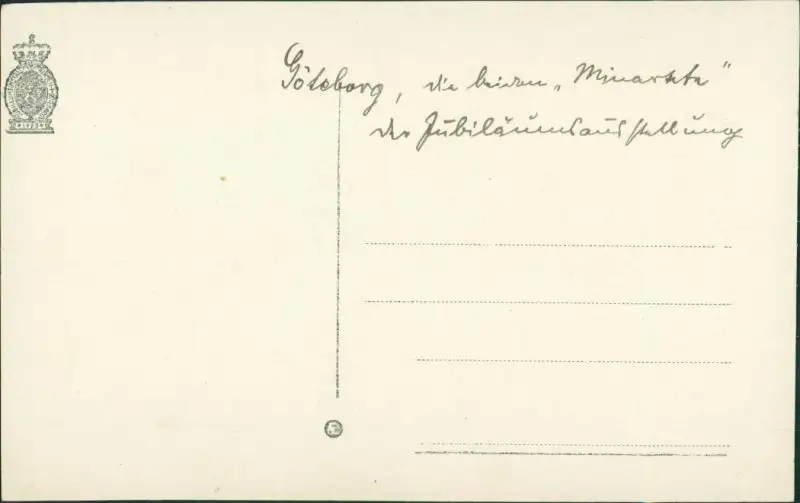 Göteborg, die beiden „Minarette"
der Jubiläumsausstellung